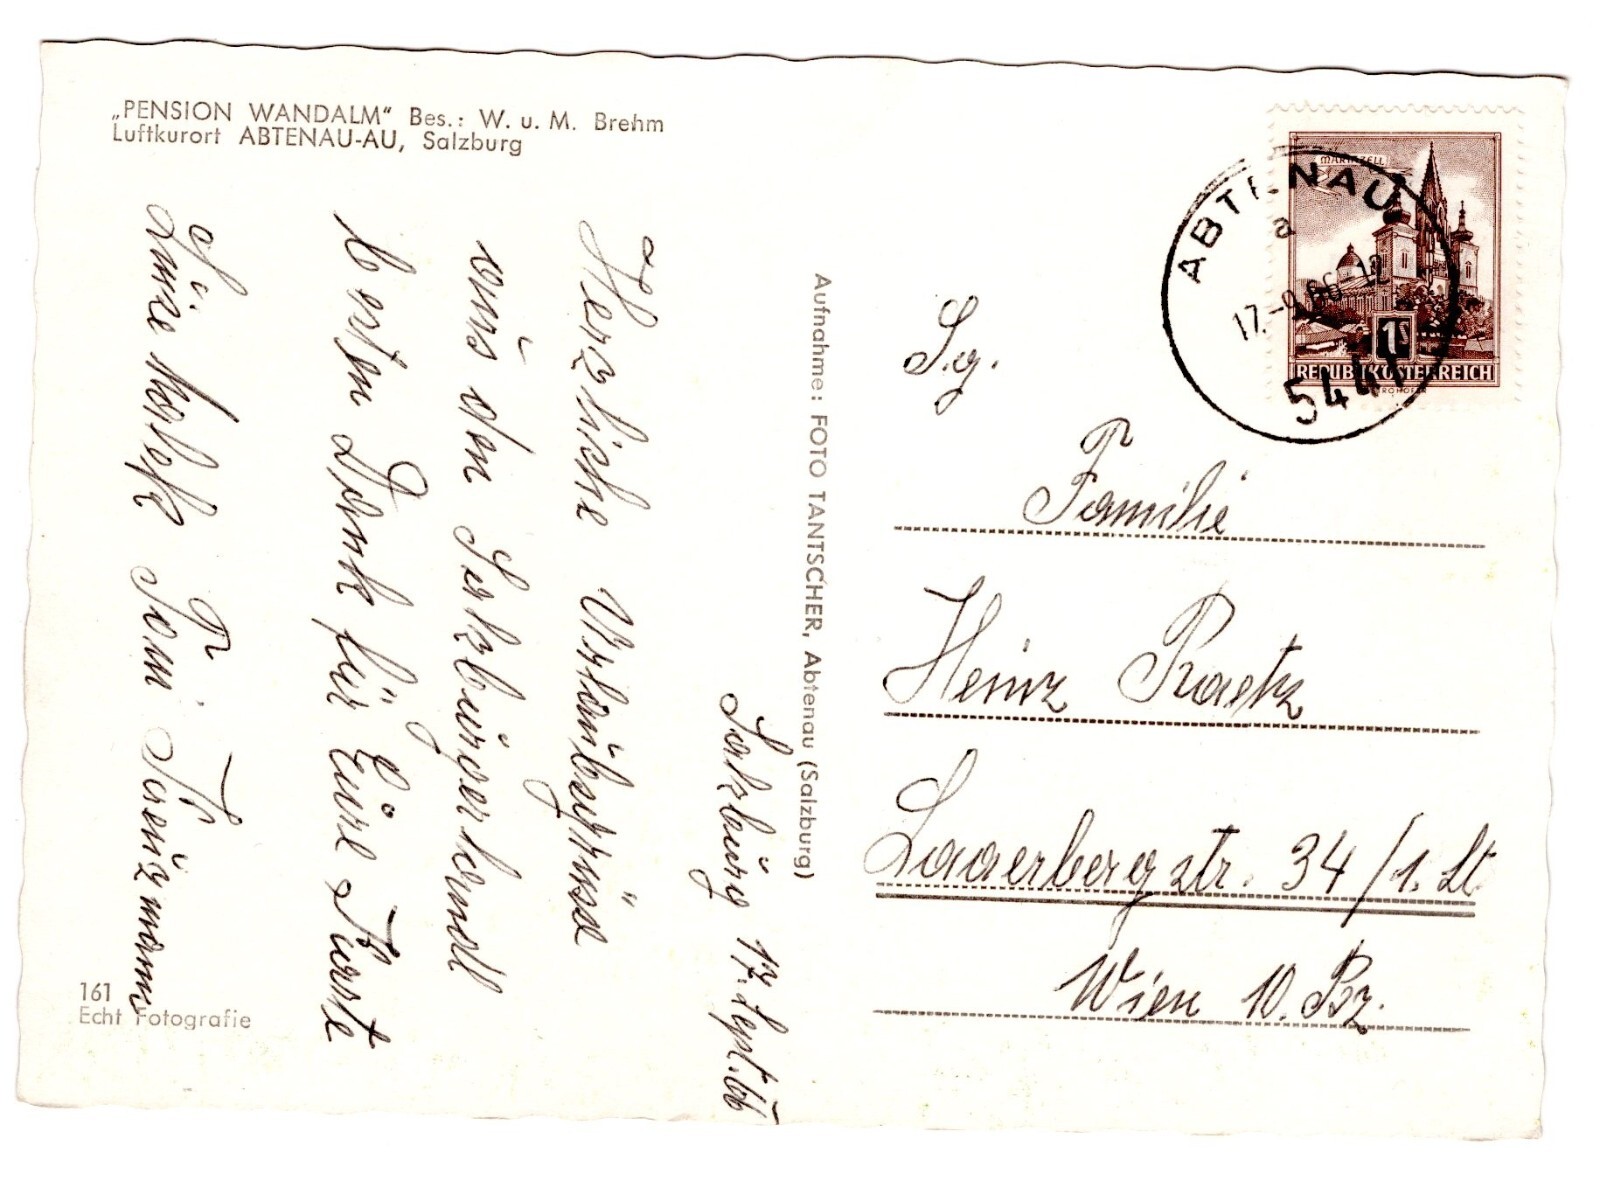 „PENSION WANDALM“ Bes.: W. u. M. Brehm
Luftkurort ABTENAU-AU, Salzburg
Salzburg 17. Sept. 66
Herzliche Urlaubsgrüsse
aus dem Salzburgerland
besten Dank für Eure Karte
Toni
161
Echt Fotografie
Aufnahme: FOTO TANTSCHER, Abtenau (Salzburg)
MARIAZELL
1S
REPUBLIK ÖSTERREICH
ABTENAU
a
17.-9.66-12
5441
Sg.
Familie
Heinz Raetz
Laaerbergstr. 34/1. St.
Wien 10. Bz.